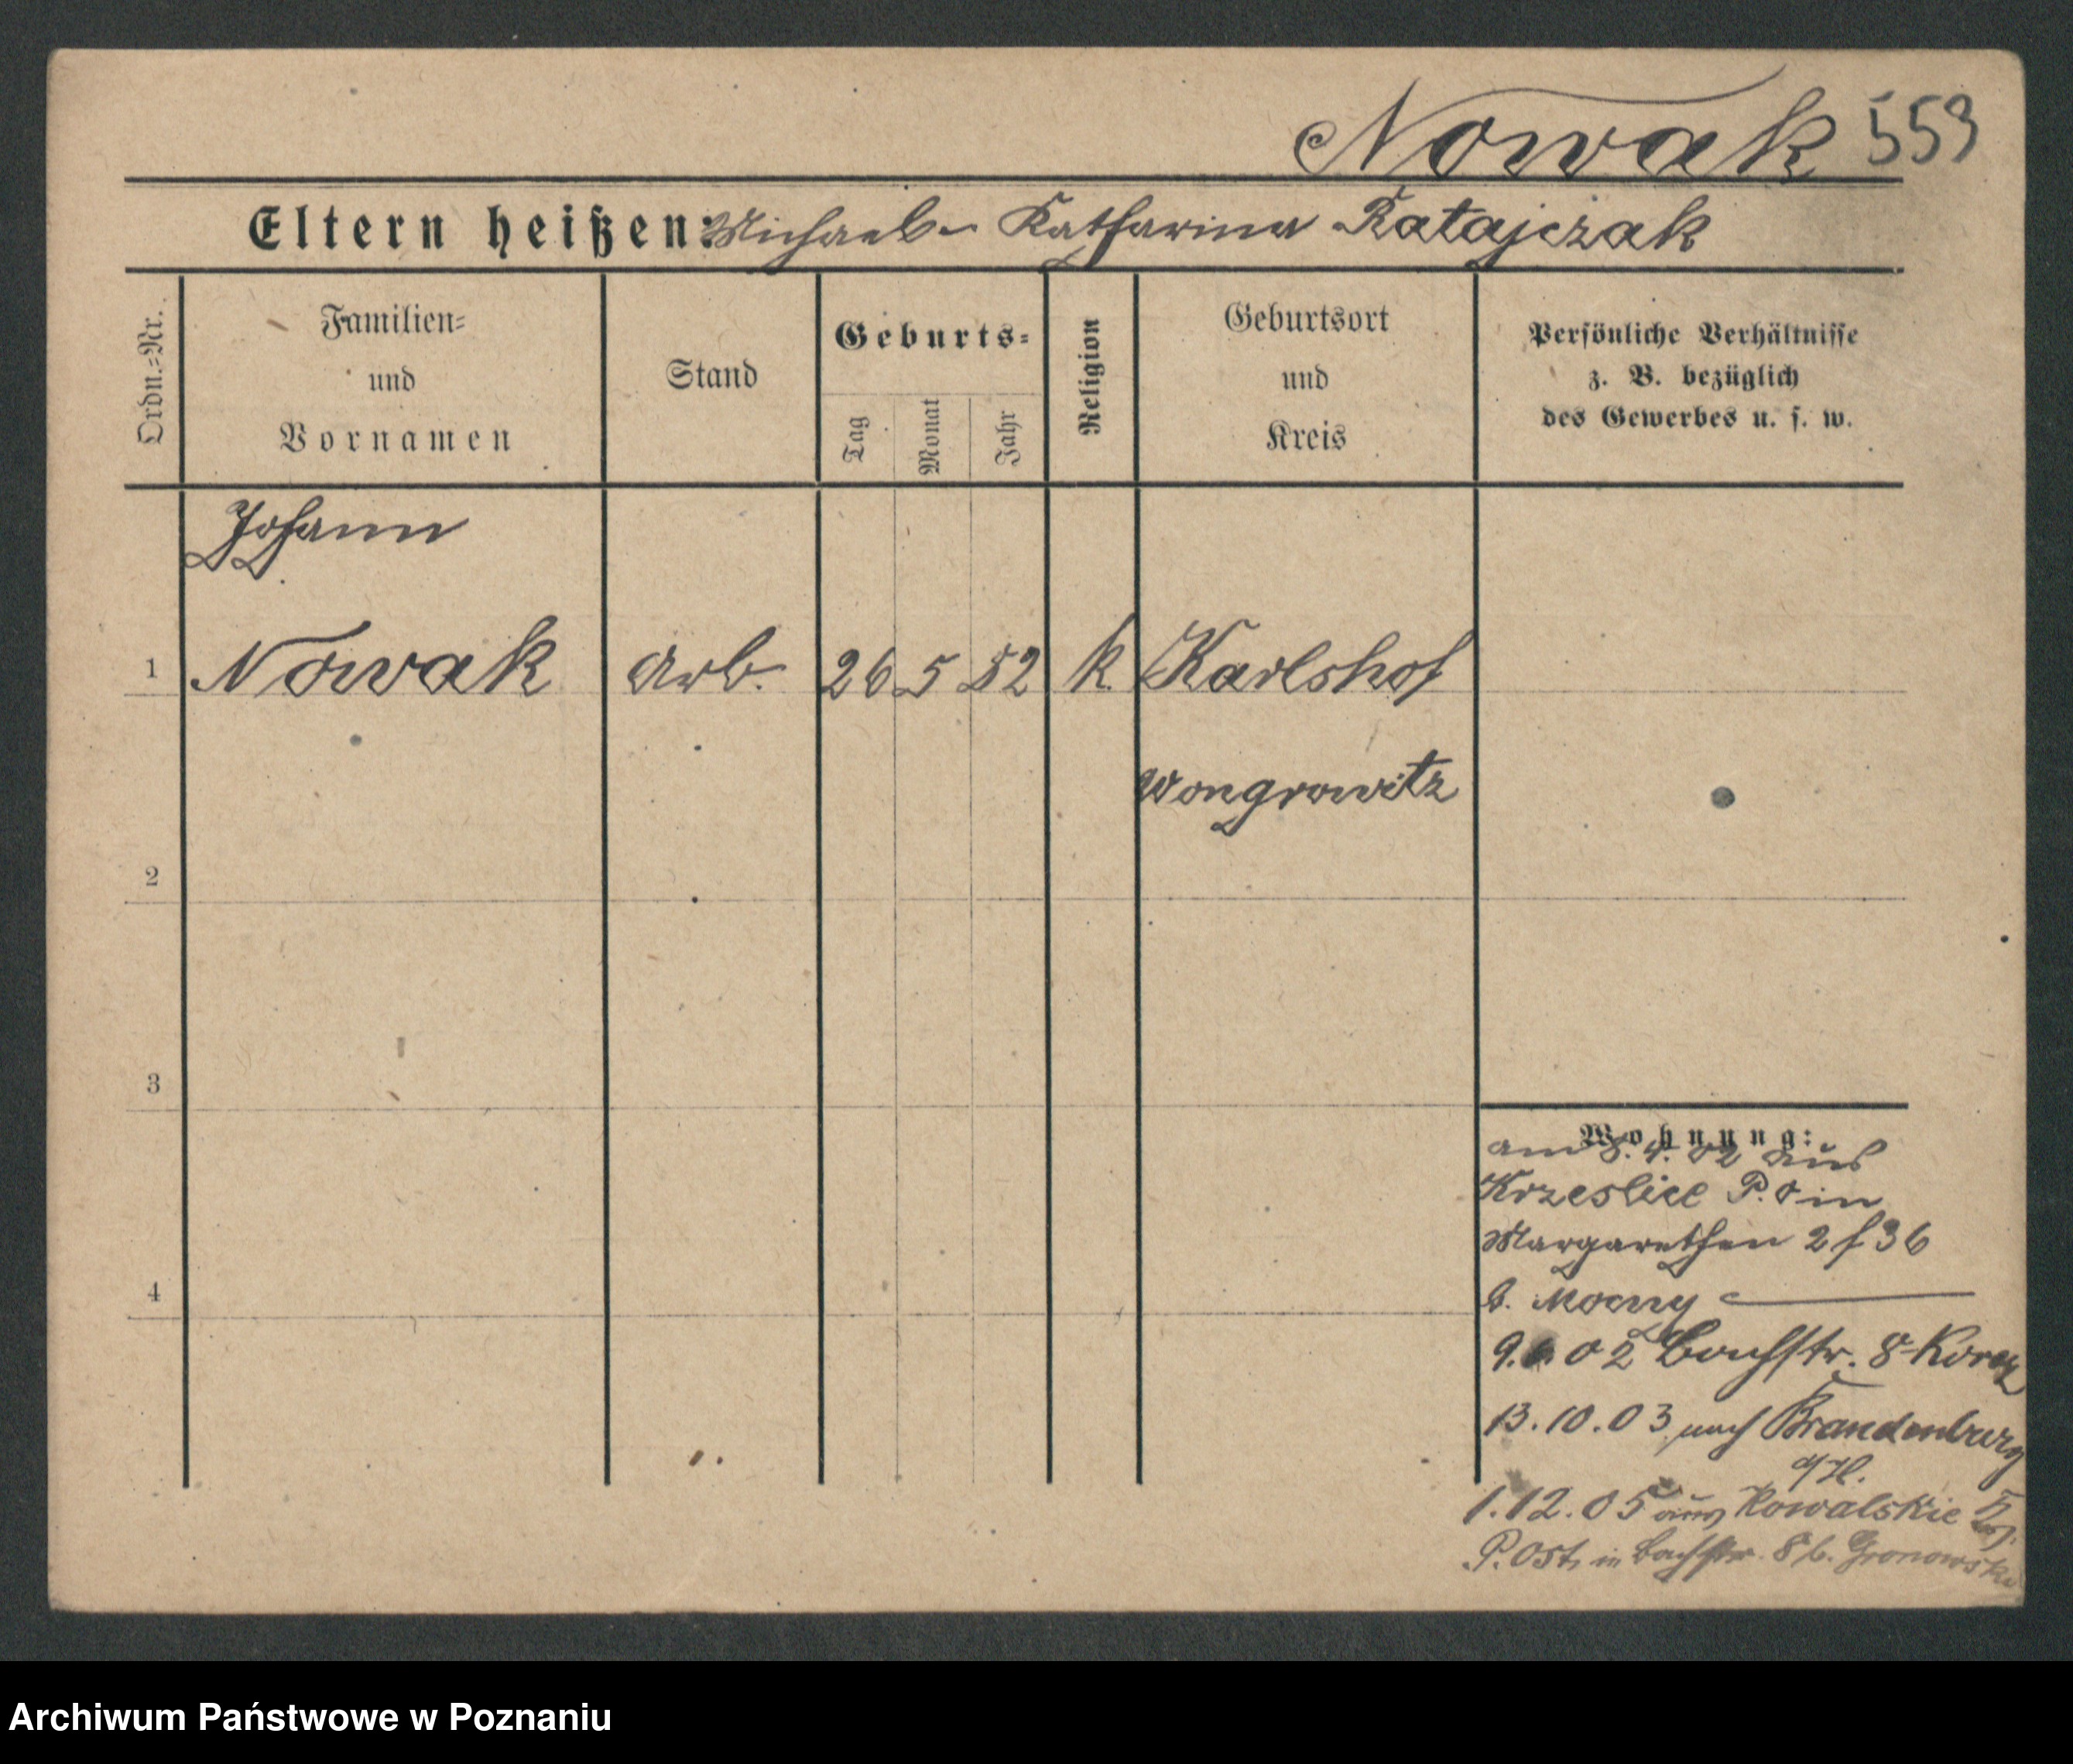 Nowak 559
Eltern heißen: Michael u Katharina Ratajczak
Ordn.=Nr.
Familien=
und
Vornamen
Stand
Geburts=
Tag
Monat
Jahr
Religion
Geburtsort
und
Kreis
Persönliche Verhältnisse
z. B. bezüglich
des Gewerbes u. s. w.
Johann
1 Nowak Arb. 26 5 52 k. Karlshof
Wongrowitz
2
3
4
Wohnung:
am 8. 4. 02 aus
Krzeslice P. O in
Margarethen 2 f 36
b. Mocny
9. 6. 02 Bachstr. 8
13.10.03 nach Brandenburg
a/H.
1.12.05 aus Kowalskie
P. Ost, in Bachstr. 8 b. Gronowski
Archiwum Państwowe w Poznaniu